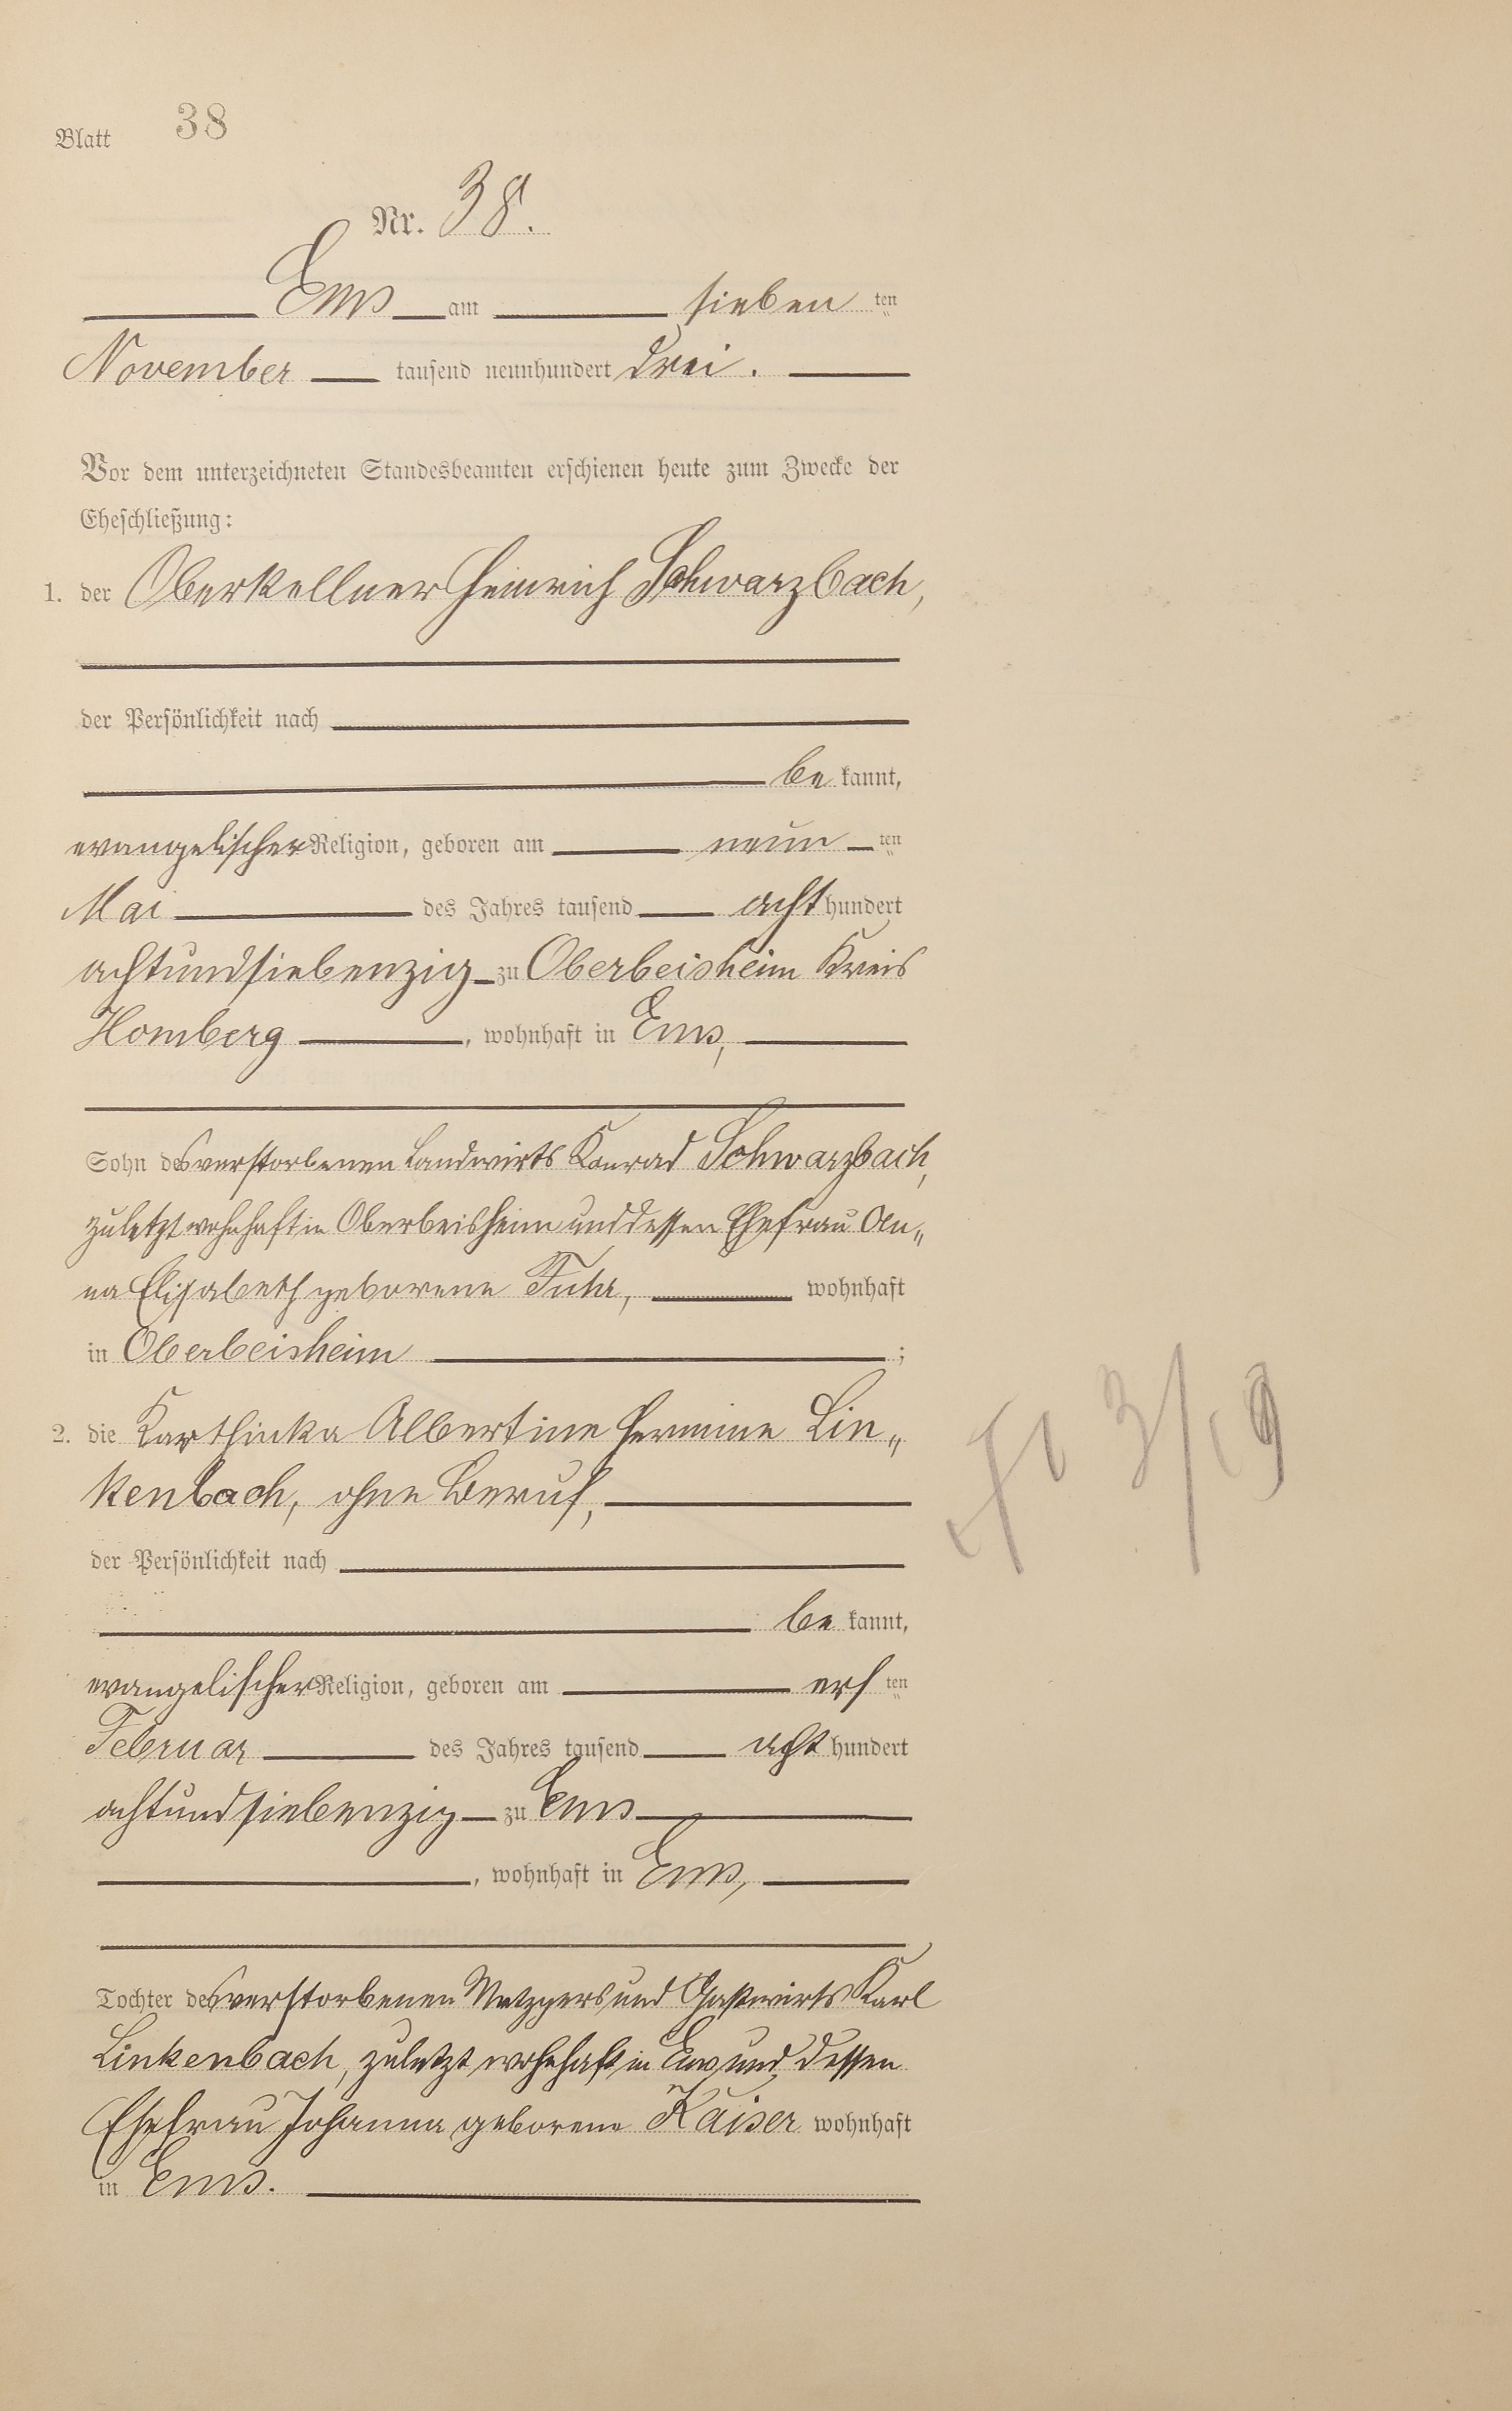 Blatt 38
Nr. 38.
Ems am sieben ten
November tausend neunhundert drei.
Vor dem unterzeichneten Standesbeamten erschienen heute zum Zwecke der
Eheschließung:
1. der Oberkellner Heinrich Schwarzbach,
der Persönlichkeit nach
be kannt,
evangelischer Religion, geboren am neun ten
Mai des Jahres tausend acht hundert
achtundsiebenzig zu Oberbeisheim Kreis
Homberg, wohnhaft in Ems,
Sohn des verstorbenen Landwirts Konrad Schwarzbach,
zuletzt wohnhaft in Oberbeisheim und dessen Ehefrau An„
na Elisabeth geborene Fuhr, wohnhaft
in Oberbeisheim ;
2. die Karthinka Albertine Hermine Lin„
kenbach, ohne Beruf,
der Persönlichkeit nach
be kannt,
evangelischer Religion, geboren am ers ten
Februar des Jahres tausend acht hundert
achtundsiebenzig zu Ems
, wohnhaft in Ems,
Tochter des verstorbenen Metzgers und Gastwirts Karl
Linkenbach, zuletzt wohnhaft in Ems und dessen
Ehefrau Johanna geborene Kaiser wohnhaft
in Ems.